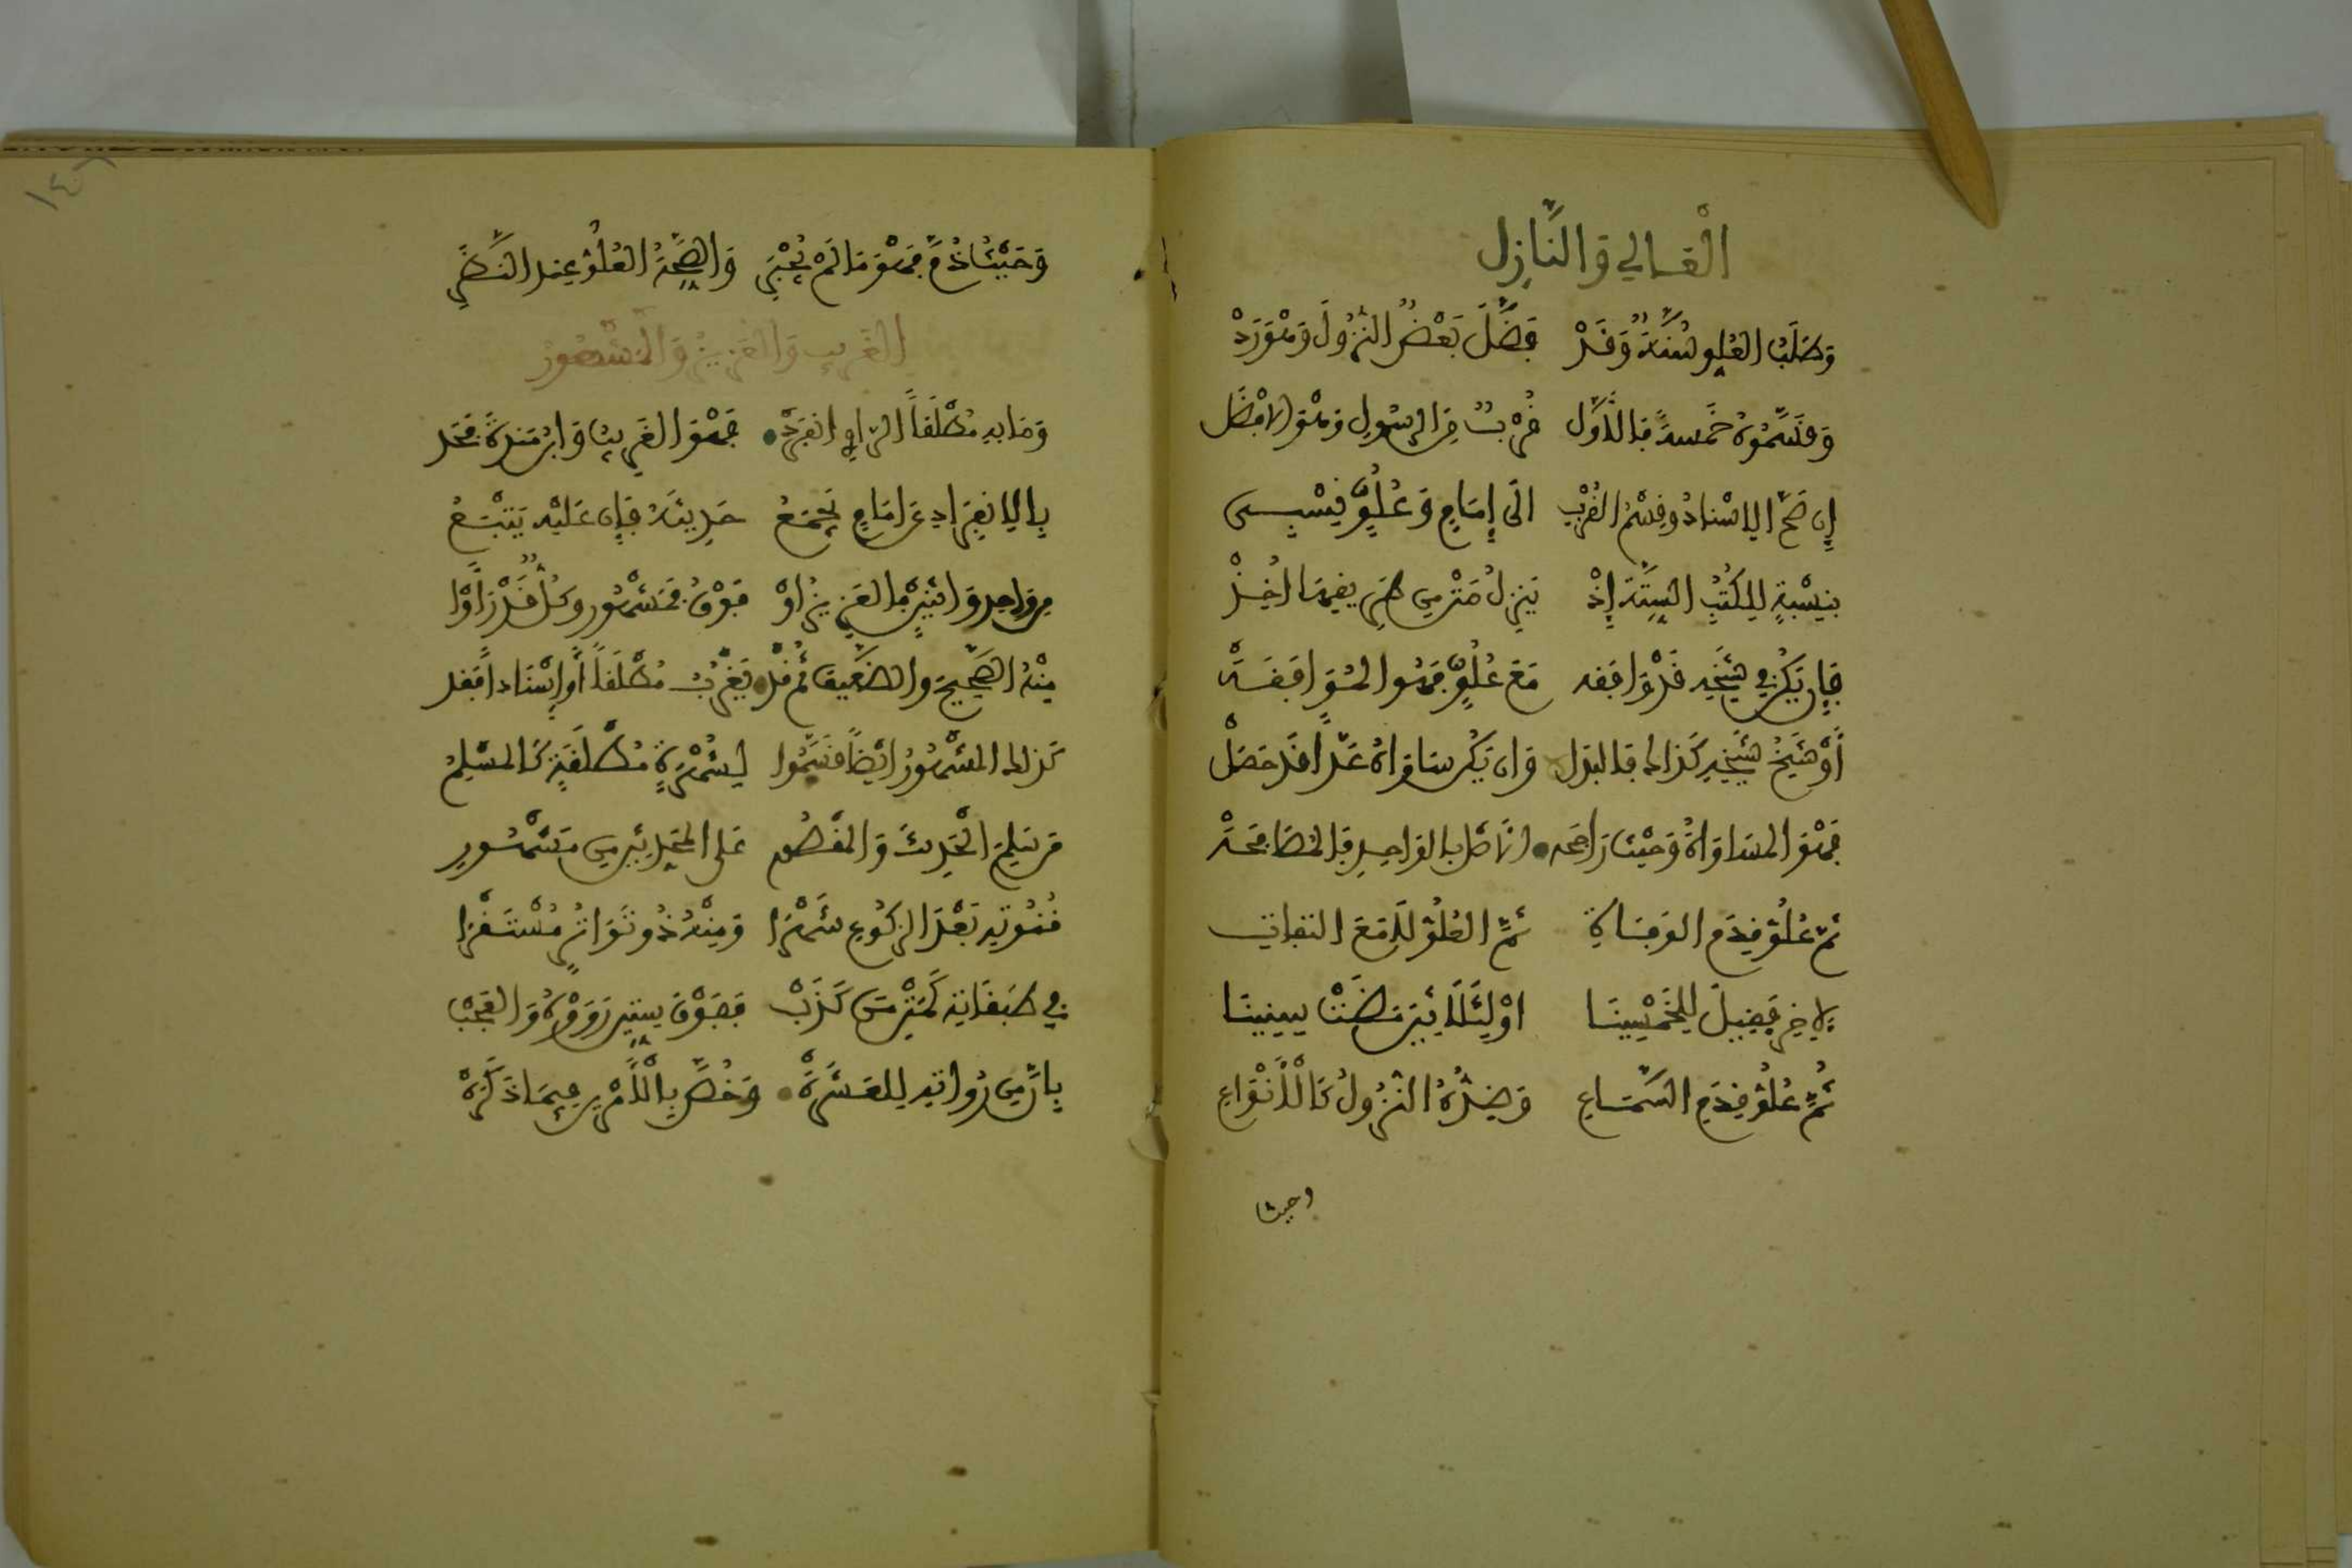 الْعَالِي وَالنَّازِل
وَطَلَبُ العُلُوِ سُنَّةٌ وَقَدْ فَضَّلَ بَعْضٌ النُّزُولَ وَهْوَ رَدْ
وَقَسَّمُوهُ خَمْسَةً فَالأَوَّلُ قُرْبٌ مِنَ الرَّسُولِ وَهْوَ الافْضَلُ
إِن صَحَّ الاِسْنَادُ وَقِسْمُ القُرْبِ الَى إِمَامٍ وَعُلُوٍّ نِسْبِى
بِنِسْبَةٍ لِلْكُتُبِ السِّتَّةِ إِذْ يَنزِلُ مَتْنٌ مِن طَرِيقِهَا أُخِذْ
فَإِن يَكُن فِي شَيْخِهِ قَدْ وَافَقَه مَعْ عُلُوٍّ فَهُوَ الْمُوَافَقَهْ
أَوْ شَيْخِ شَيْخِهِ كَذَاكَ فَالبَدَل وَان يَكُن سَاوَاهُ عَدًّا قَدْ حَصَلْ
فَهْوَ المُسَاوَاةُ وَحَيْثُ رَاجَحَه الاَصْلُ بِالوَاحِدِ فَالمُصَافَحَهْ
ثُمَّ عُلُوُّ قِدَمِ الوَفَاةِ ثُمَّ العُلُوُّ لاَ مَعَ التفات
لاَخِرٍ فَقِيلَ لِلْخَمْسِينَا اوْ لِثَّلاَثِينَ مَضَتْ سِنِينَا
ثُمَّ عُلُوُّ قِدَمِ السَّمَاعِ وَضِدُّهُ النُّزُولُ كَالأَنْوَاعِ
وحيث
١٤٦
وَحَيْثُ ذُمَّ فَهْوَ مَا لَمْ يُجْبَرِ وَالصِّحَّةُ العُلُوُّ عِندَ النَّظَرِ
الغَرِيبُ وَالعَزِيزُ وَالمَشْهُورُ
وَمَا بِهِ مُطْلَقاً الرَّاوِي انفَرَدْ فَهْوَ الغَرِيبُ وَابْنُ مَندَةَ فَحَد
بِالاِنفِرَادِ عَن امَامٍ يُجْمَعُ حَدِيثُهُ فَإِن عَلَيْهِ يُتْبَعُ
مِن وَاحِدٍ وَاثْنَيْنِ فَالعَزِيزُ أَوْ فَوْقُ فَمَشْهُورٌ وَكُلٌّ قَدْ رَأَوْا
مِنْهُ الصَّحِيحَ وَالضَّعِيفَ ثُمَّ قَدْ يَغْرُبُ مُطْلَقاً أَو اِسْنَاداً فَقَد
كَذَلِكَ المَشْهُورُ أَيْضاً قَسَّمُوا لِشُهْرَةٍ مُطْلَقَةٍ كَالمُسْلِمُ
مَن سَلِمَ الْحَدِيثَ وَالمَقْصُورِ عَلَى المُحَدِّثِينَ مِن مَشْهُورِ
قُنُوتِهِ بَعْدَ الرُّكُوعِ شَهْرَا وَمِنْهُ ذُو تَوَاتُرٍ مُسْتَقْرَا
فِي طَبَقَاتِهِ كَمَتْنِ مَن كَذَبْ فَفَوْقَ سِتِّينَ رَوَوْهُ وَالعَجَبْ
بِأَنَّ مِن رُوَاتِهِ لَلعَشَرَهْ وَخُصَّ بِالأَمْرَيْنِ فِيمَا ذَكَرَهْ